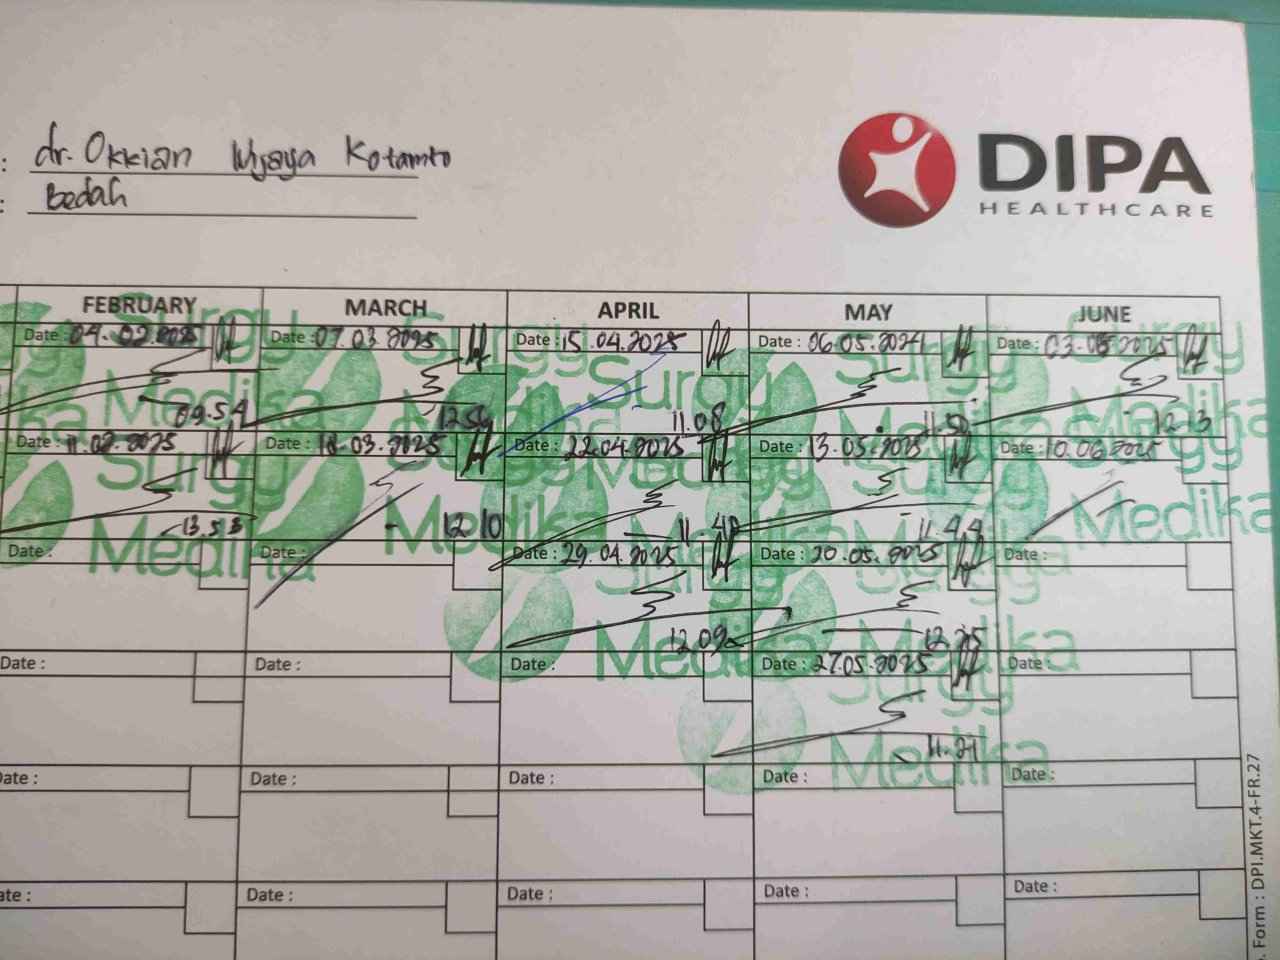 : dr. Okkian Wijaya Kotamto
: Bedah
DIPA
HEALTHCARE
FEBRUARY MARCH APRIL MAY JUNE
Date : 04.02.2025 Date : 07.03.2025 Date : 15.04.2025 Date : 06.05.2024 Date : 03.06.2025
Surgy Medika
09.54 12.54 11.08 11.50 12.13
Date : 11.02.2025 Date : 18.03.2025 Date : 22.04.2025 Date : 13.05.2025 Date : 10.06.2025
Surgy Medika
13.53 12.10 11.49 11.44
Date : Date : Date : 29.04.2025 Date : 20.05.2025 Date :
12.09 12.25
Medika Medika
Date : Date : Date : Date : 27.05.2025 Date :
Surgy
11.21
Medika
Date : Date : Date : Date : Date :
Date : Date : Date : Date : Date :
. Form : DPI.MKT.4-FR.27